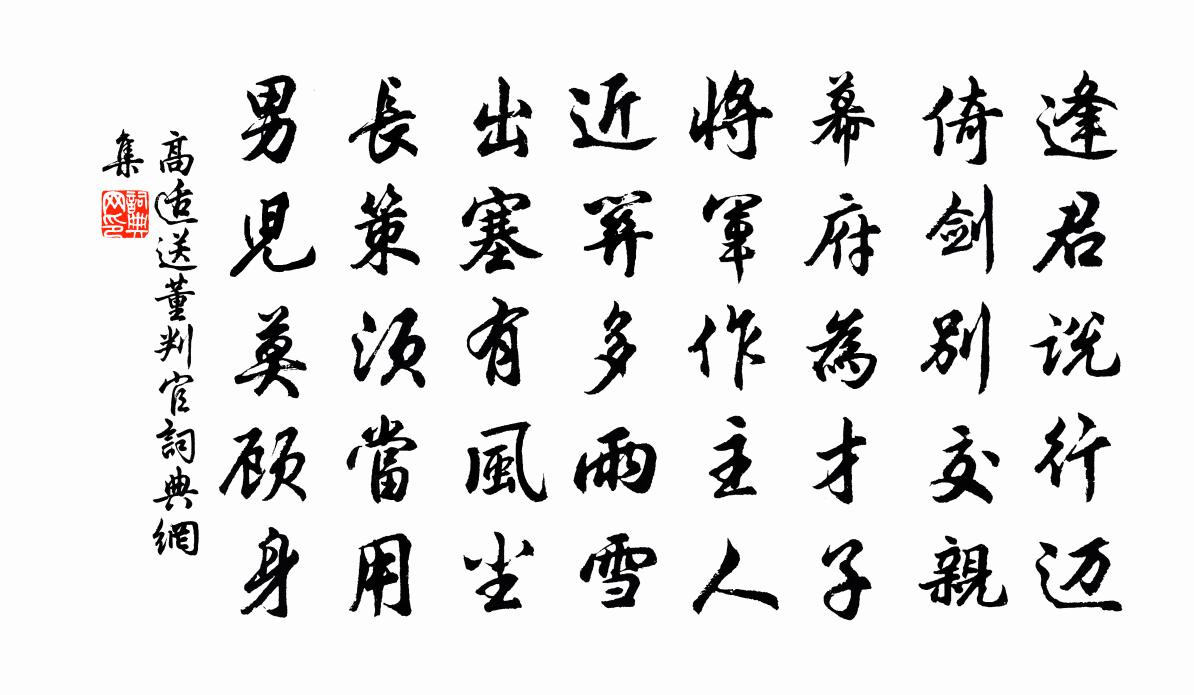 逢君说行迈
倚剑别交親
幕府為才子
將軍作主人
近關多雨雪
出塞有風塵
長策须當用
男兒莫顾身
高适送董判官詞典網
集
詞典
网印